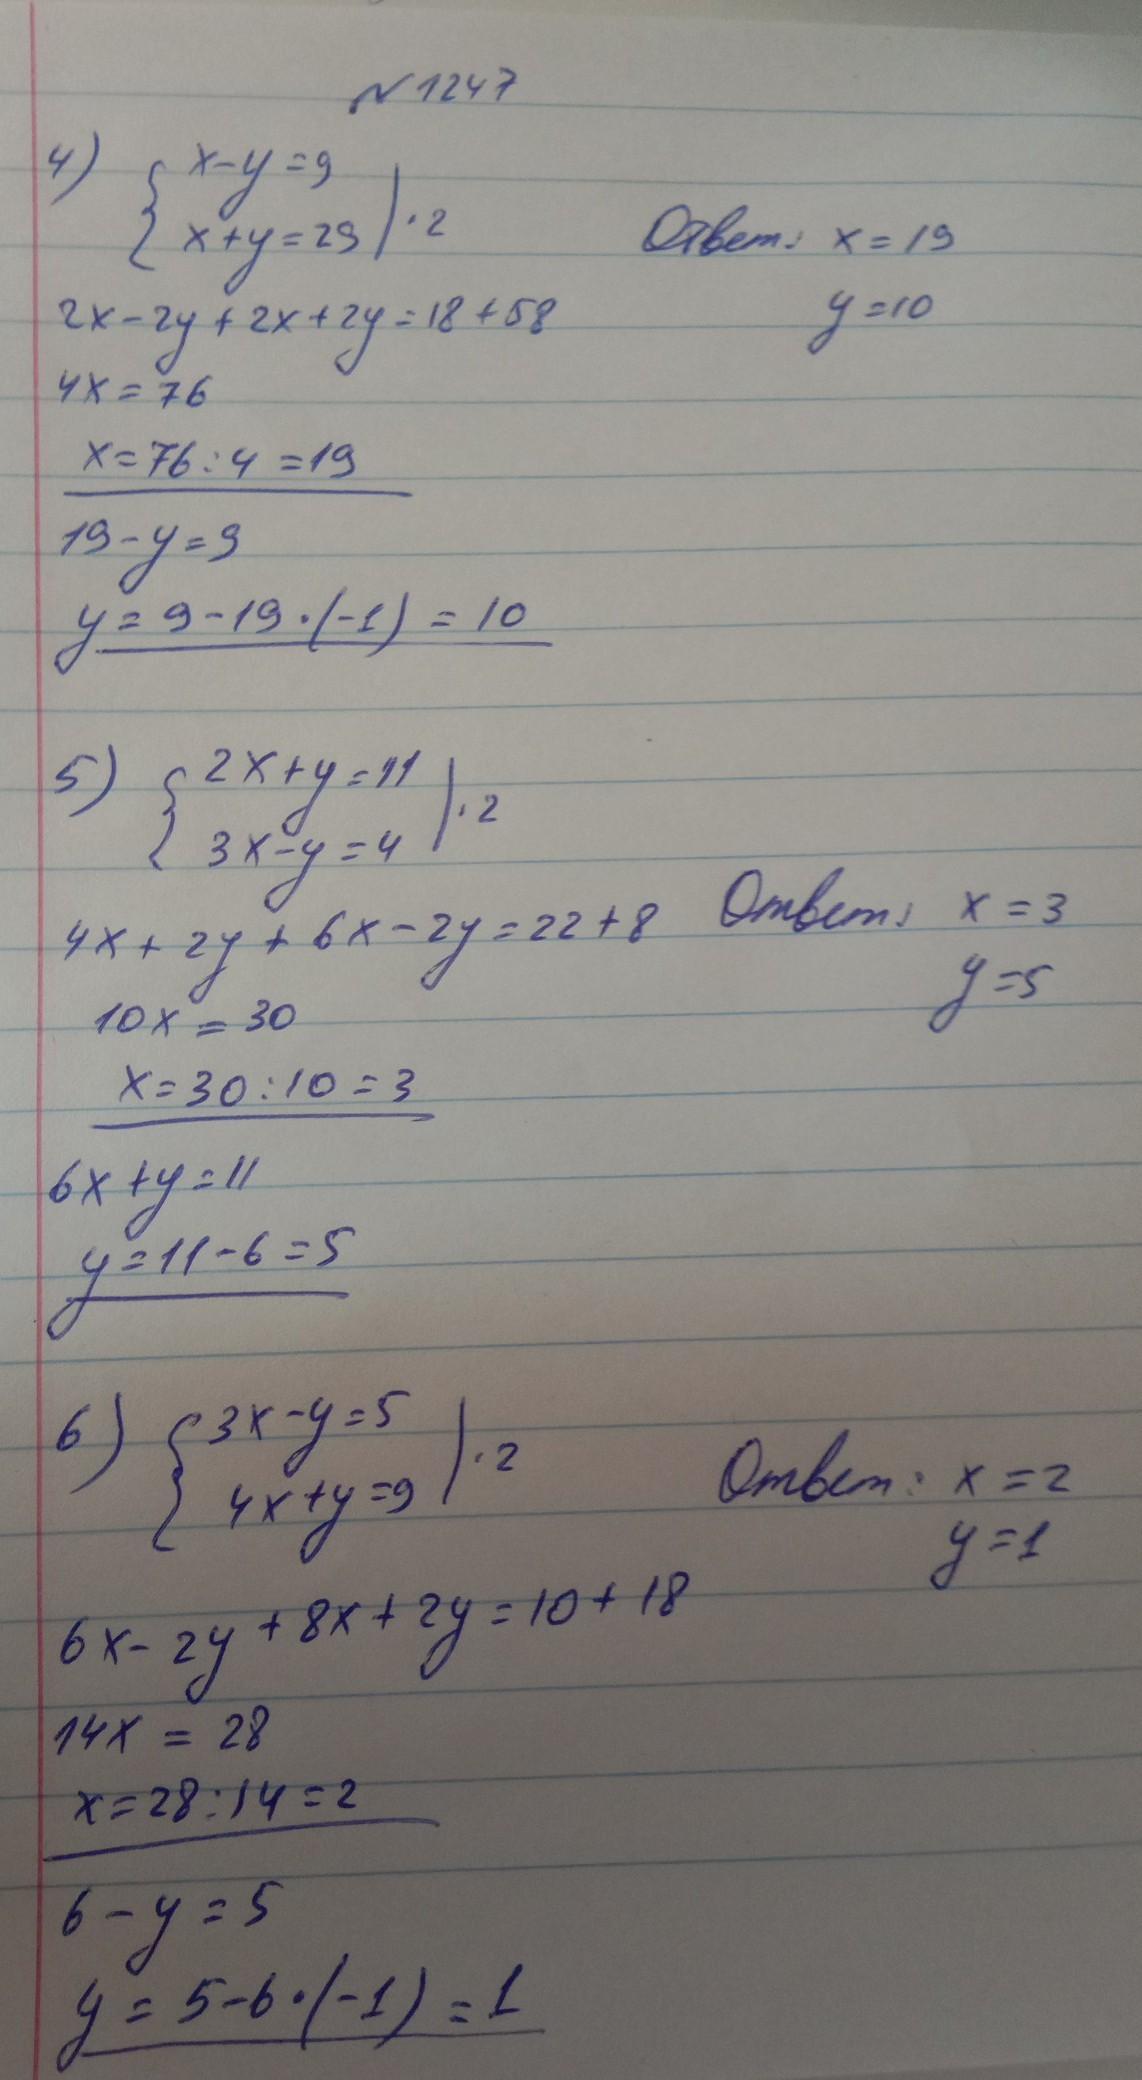 №1247
4) { x-y=9
x+y=29 | ·2
Ответ: x=19
y=10
2x-2y+2x+2y=18+58
4x=76
x=76:4=19
19-y=9
y=9-19·(-1)=10
5) { 2x+y=11
3x-y=4 | ·2
4x+2y+6x-2y=22+8
Ответ: x=3
y=5
10x=30
x=30:10=3
6x+y=11
y=11-6=5
6) { 3x-y=5
4x+y=9 | ·2
Ответ: x=2
y=1
6x-2y+8x+2y=10+18
14x=28
x=28:14=2
6-y=5
y=5-6·(-1)=1